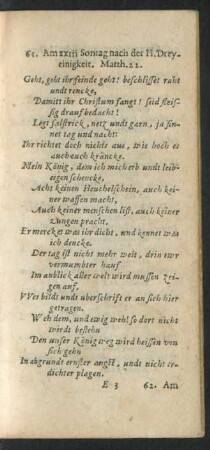 61. Am xxiii Sontag nach der H. Drey-
einigkeit. Matth. 22.
Geht, geht ihr feinde geht! beschlisset raht
undt rencke,
Damitt ihr Christum fangt! seid fleis-
sig drauf bedacht!
Legt falstrick, netz undt garn, ja sin-
net tag und nacht:
Ihr richtet doch nichts aus, wie hoch es
auch euch kräncke.
Mein König, dem ich mich erb undt leib-
eigen schencke,
Acht keinen Heuchelschein, auch kei-
ner waffen macht,
Auch keiner menschen list, auch keiner
zungen pracht,
Er mercket was ihr dicht, und kennet was
ich dencke.
Der tag ist nicht mehr weit, drin ewr
vermumbter hauf
Im anblick aller welt wird mussen zei-
gen auf,
Wes bildt undt uberschrifft er an sich hier
getragen.
Weh dem, und ewig weh! so dort nicht
wirdt bestehn
Den unser König weg wird heissen von
sich gehn
In abgrundt ernster angst, undt nicht er-
dichter plagen.
E 3 62. Am